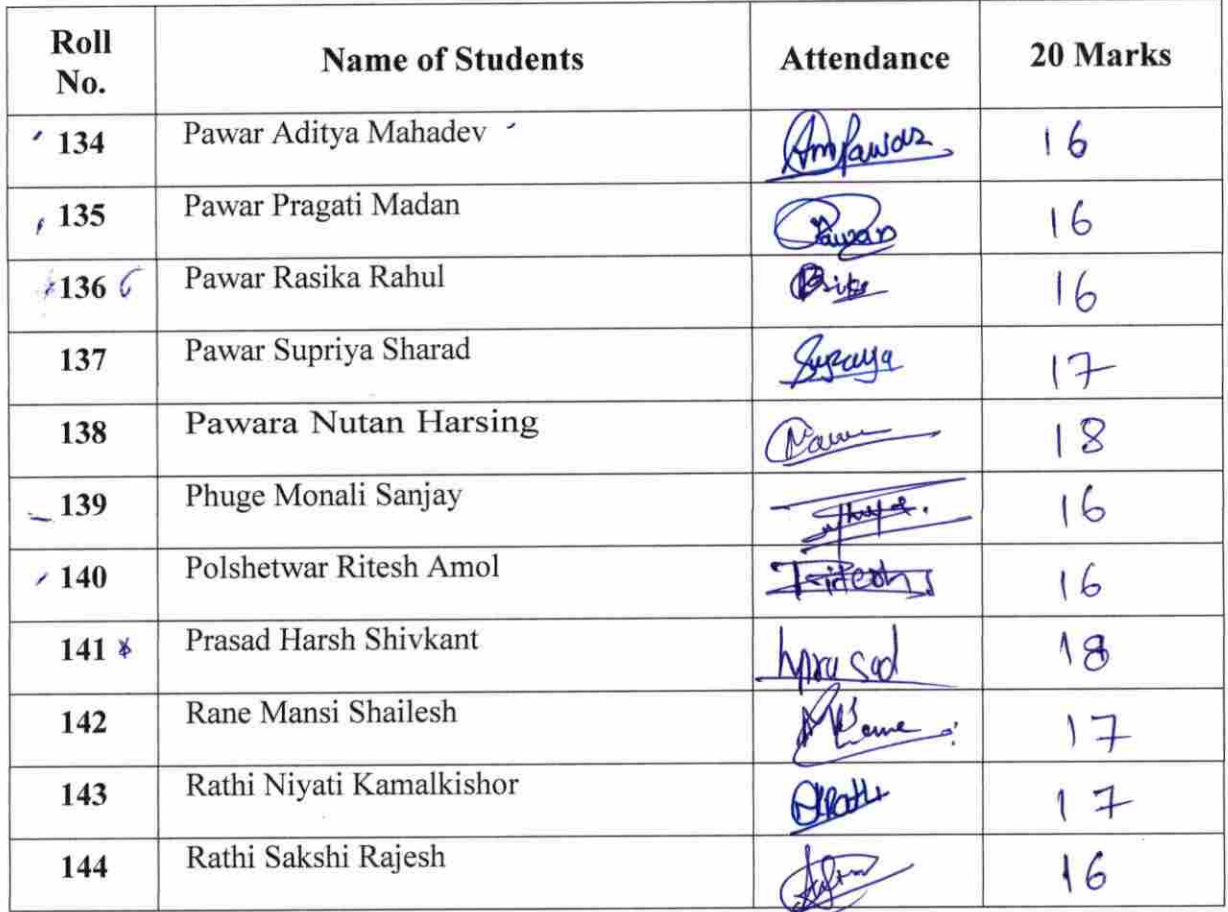 Roll No. Name of Students Attendance 20 Marks
134 Pawar Aditya Mahadev AmPawar 16
135 Pawar Pragati Madan Pawar 16
136 6 Pawar Rasika Rahul 16
137 Pawar Supriya Sharad 17
138 Pawara Nutan Harsing 18
139 Phuge Monali Sanjay 16
140 Polshetwar Ritesh Amol Ritesh 16
141 Prasad Harsh Shivkant hprasad 18
142 Rane Mansi Shailesh 17
143 Rathi Niyati Kamalkishor 17
144 Rathi Sakshi Rajesh 16